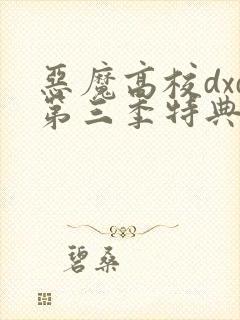 惡魔高校dxd
第三季特典
碧桑